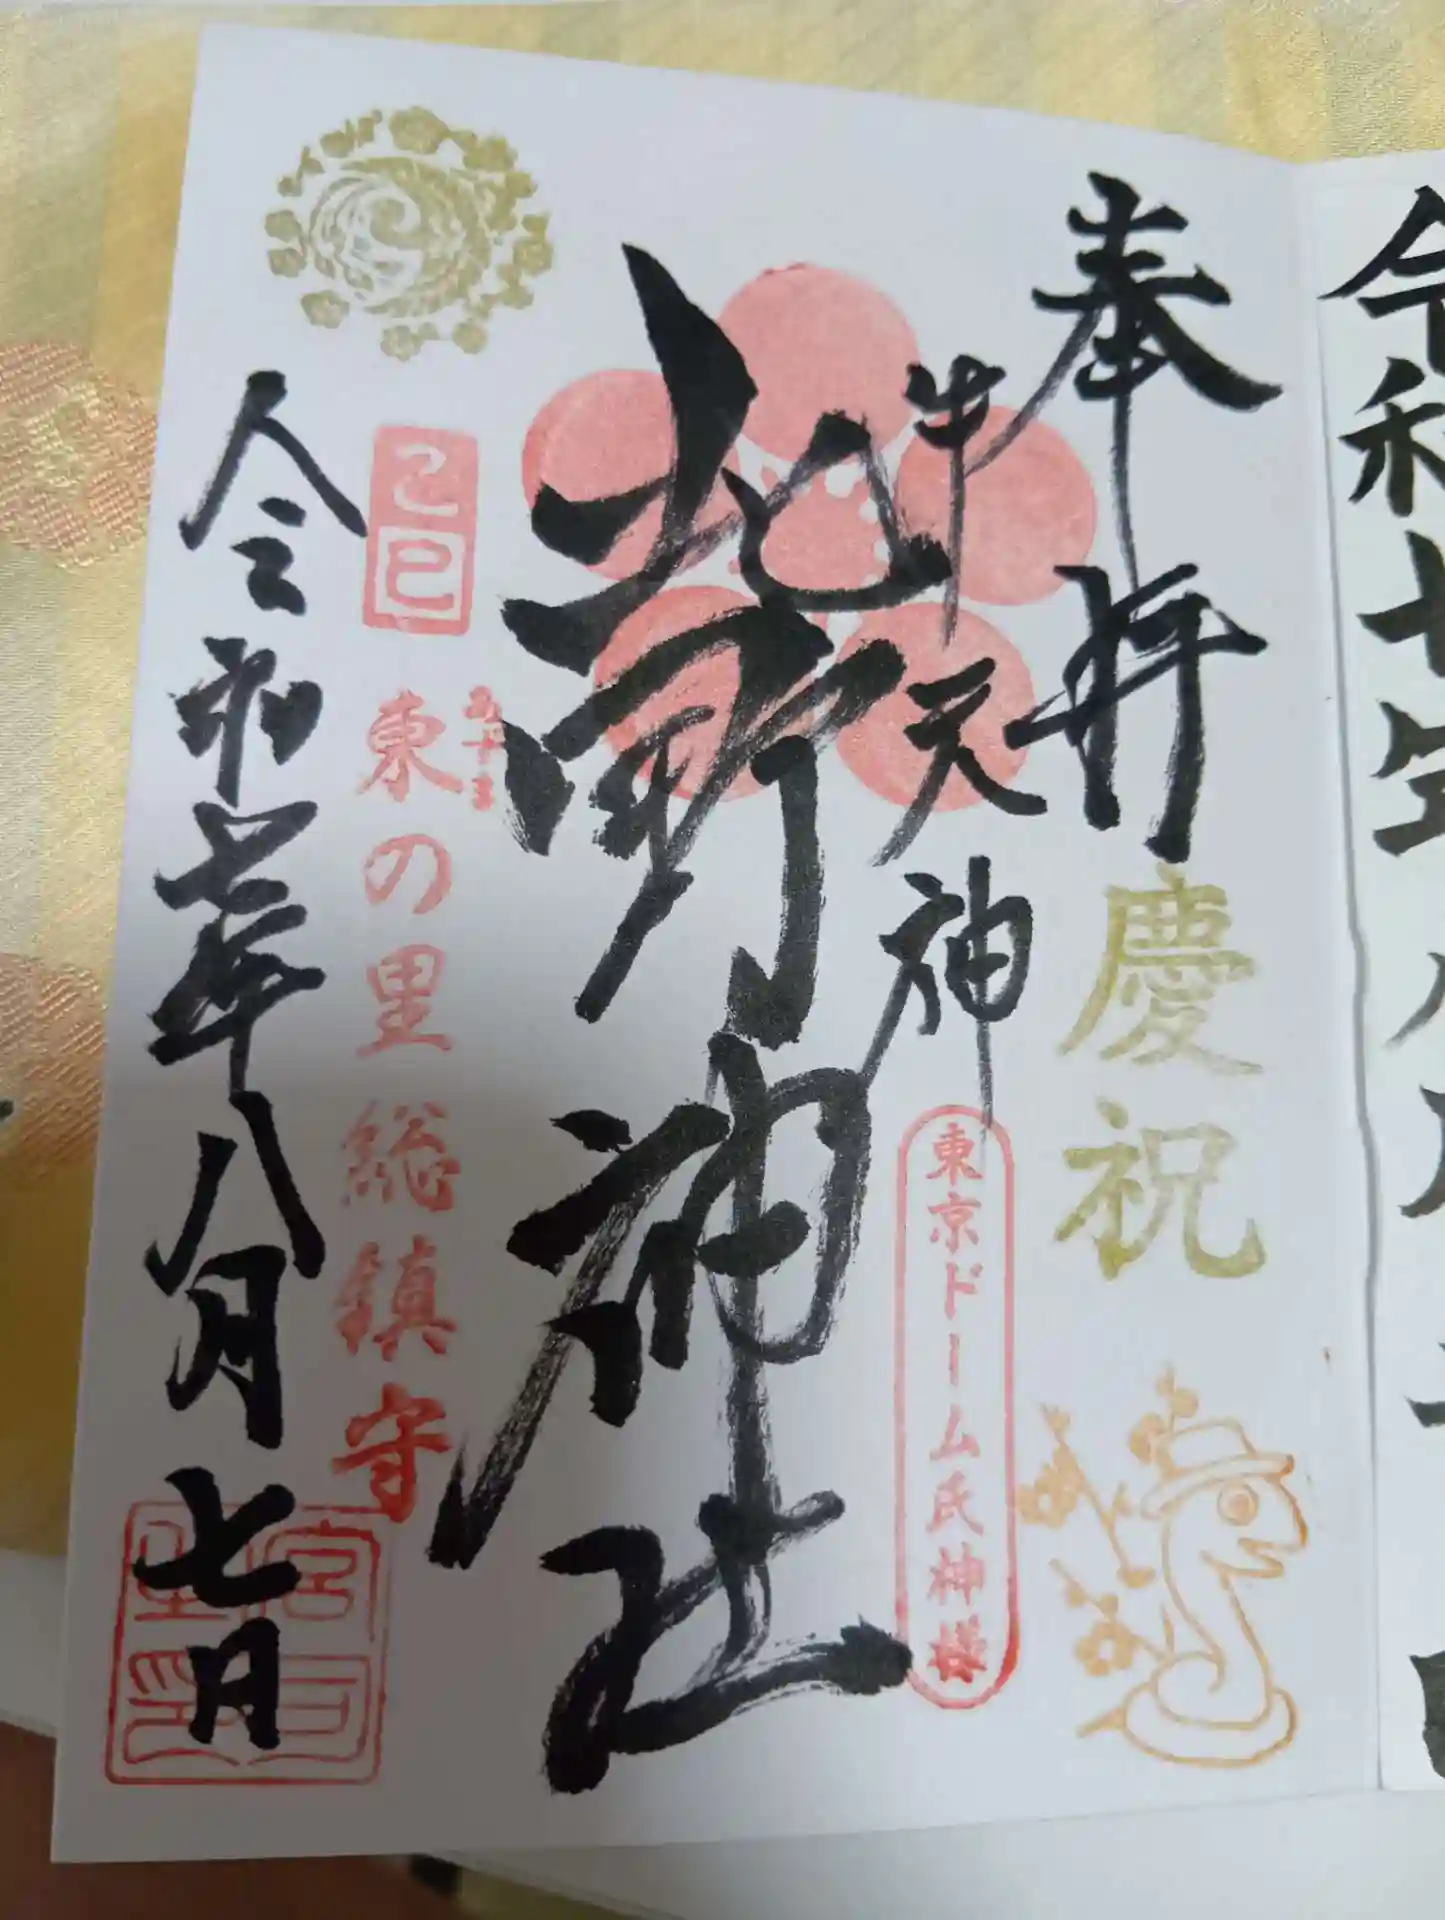 奉拝
慶祝
牛天神
東京ドーム氏神様
北野神社
己巳
東の里総鎮守
令和七年八月七日
令和七年八月